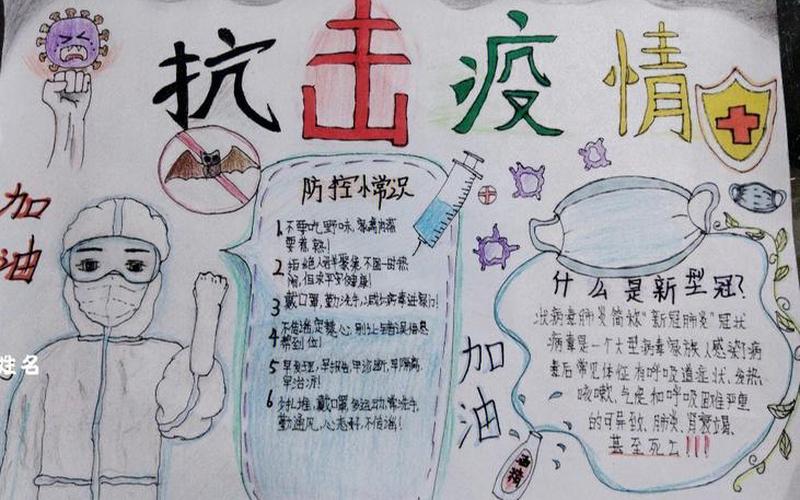 抗击疫情
加油
防控小常识
1 不要吃野味,家禽肉蛋
要煮熟!
2 拒绝人群聚集不图一时热
闹,但求平安健康!
3 戴口罩,勤洗手,减少病毒进家门!
4 不信谣,定慧心,别让错误信息
帮到位!
5 早发现,早报告,早诊断,早隔离,
早治疗!
6 少扎堆,戴口罩,多运动,常洗手,
勤通风,心态好,不信谣!
什么是新型冠?
状病毒肺炎简称"新冠肺炎"冠状
病毒是一个大型病毒家族人感染了病
毒后常见体征有呼吸道症状、发热
咳嗽、气促和呼吸困难严重
的可导致、肺炎、肾衰竭、
甚至死亡!!!
加油
姓名